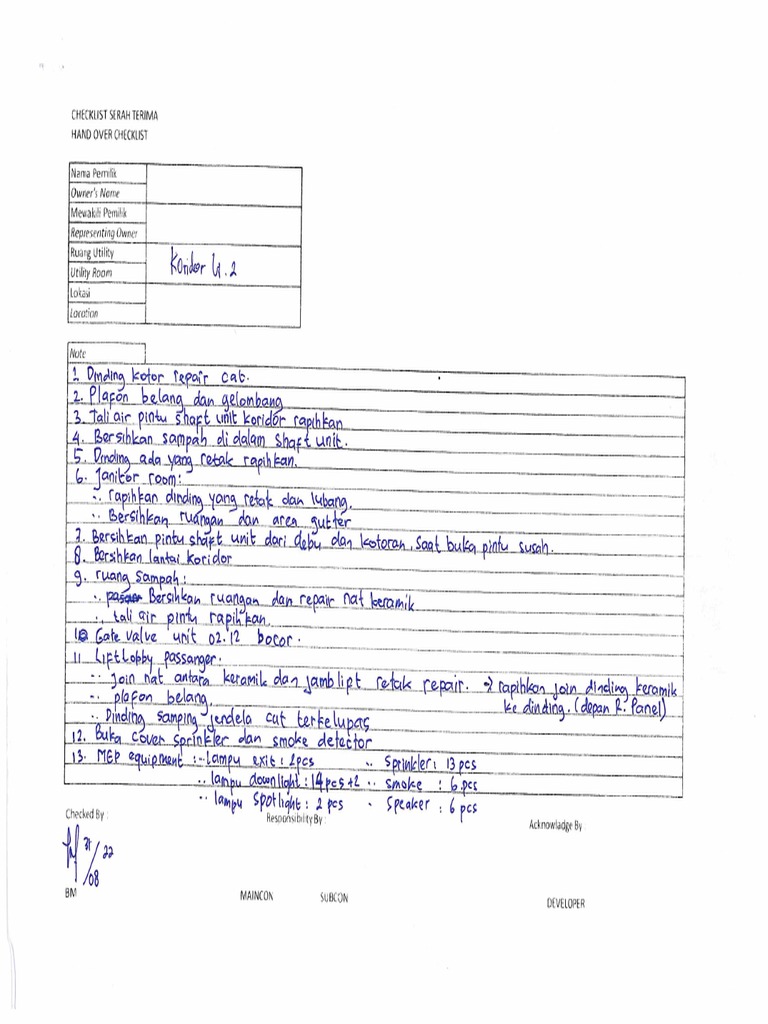 CHECKLIST SERAH TERIMA
HAND OVER CHECKLIST
Nama Pemilik
Owner's Name
Mewakili Pemilik
Representing Owner
Ruang Utility
Utility Room
Koridor Lt.2
Lokasi
Location
Note
1. Dinding kotor repair cat.
2. Plafon belang dan gelombang
3. Tali air pintu shaft unit koridor rapihkan
4. Bersihkan sampah di dalam shaft unit.
5. Dinding ada yang retak rapihkan.
6. Janitor room:
-. rapihkan dinding yang retak dan lubang.
-. Bersihkan ruangan dan area gutter
7. Bersihkan pintu shaft unit dari debu dan kotoran. Saat buka pintu susah.
8. Bersihkan lantai koridor
9. ruang sampah:
-. Bersihkan ruangan dan repair nat keramik
-. tali air pintu rapihkan.
10 Gate valve unit 02.12 bocor.
11 Lift Lobby passanger.
-. Join nat antara keramik dan jamblipt retak repair. → rapihkan join dinding keramik
-. plafon belang. ke dinding. (depan R. Panel)
-. Dinding samping jendela cat terkelupas
12. Buka cover sprinkler dan smoke detector
13. MEP equipment: -. lampu exit: 2pcs -. Sprinkler: 13 pcs
-. lampu downlight: 14 pcs+2 -. smoke : 6 pcs
-. lampu spotlight: 2 pcs - Speaker : 6 pcs
Checked By : Responsibility By : Acknowladge By
31/08 22
BM MAINCON SUBCON DEVELOPER